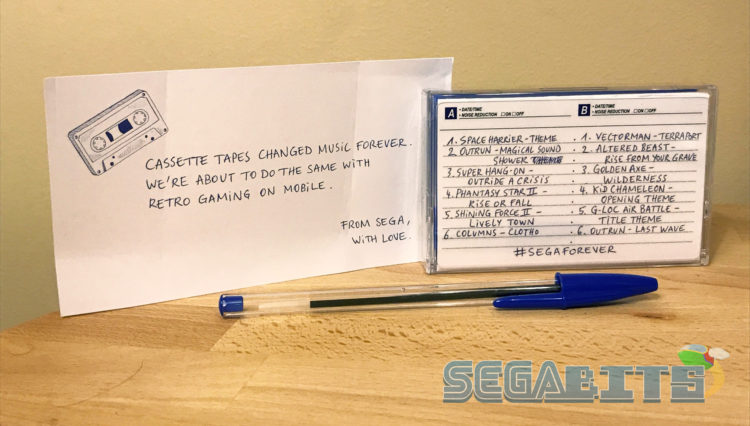 CASSETTE TAPES CHANGED MUSIC FOREVER.
WE'RE ABOUT TO DO THE SAME WITH
RETRO GAMING ON MOBILE.
FROM SEGA,
WITH LOVE.
A • DATE/TIME
• NOISE REDUCTION □ON □OFF
1. SPACE HARRIER - THEME
2. OUTRUN - MAGICAL SOUND
SHOWER THEME
3. SUPER HANG-ON -
OUTRIDE A CRISIS
4. PHANTASY STAR II -
RISE OR FALL
5. SHINING FORCE II -
LIVELY TOWN
6. COLUMNS - CLOTHO
B • DATE/TIME
• NOISE REDUCTION □ON □OFF
1. VECTORMAN - TERRAPORT
2. ALTERED BEAST -
RISE FROM YOUR GRAVE
3. GOLDEN AXE -
WILDERNESS
4. KID CHAMELEON -
OPENING THEME
5. G-LOC AIR BATTLE -
TITLE THEME
6. OUTRUN - LAST WAVE
#SEGAFOREVER
SEGABITS